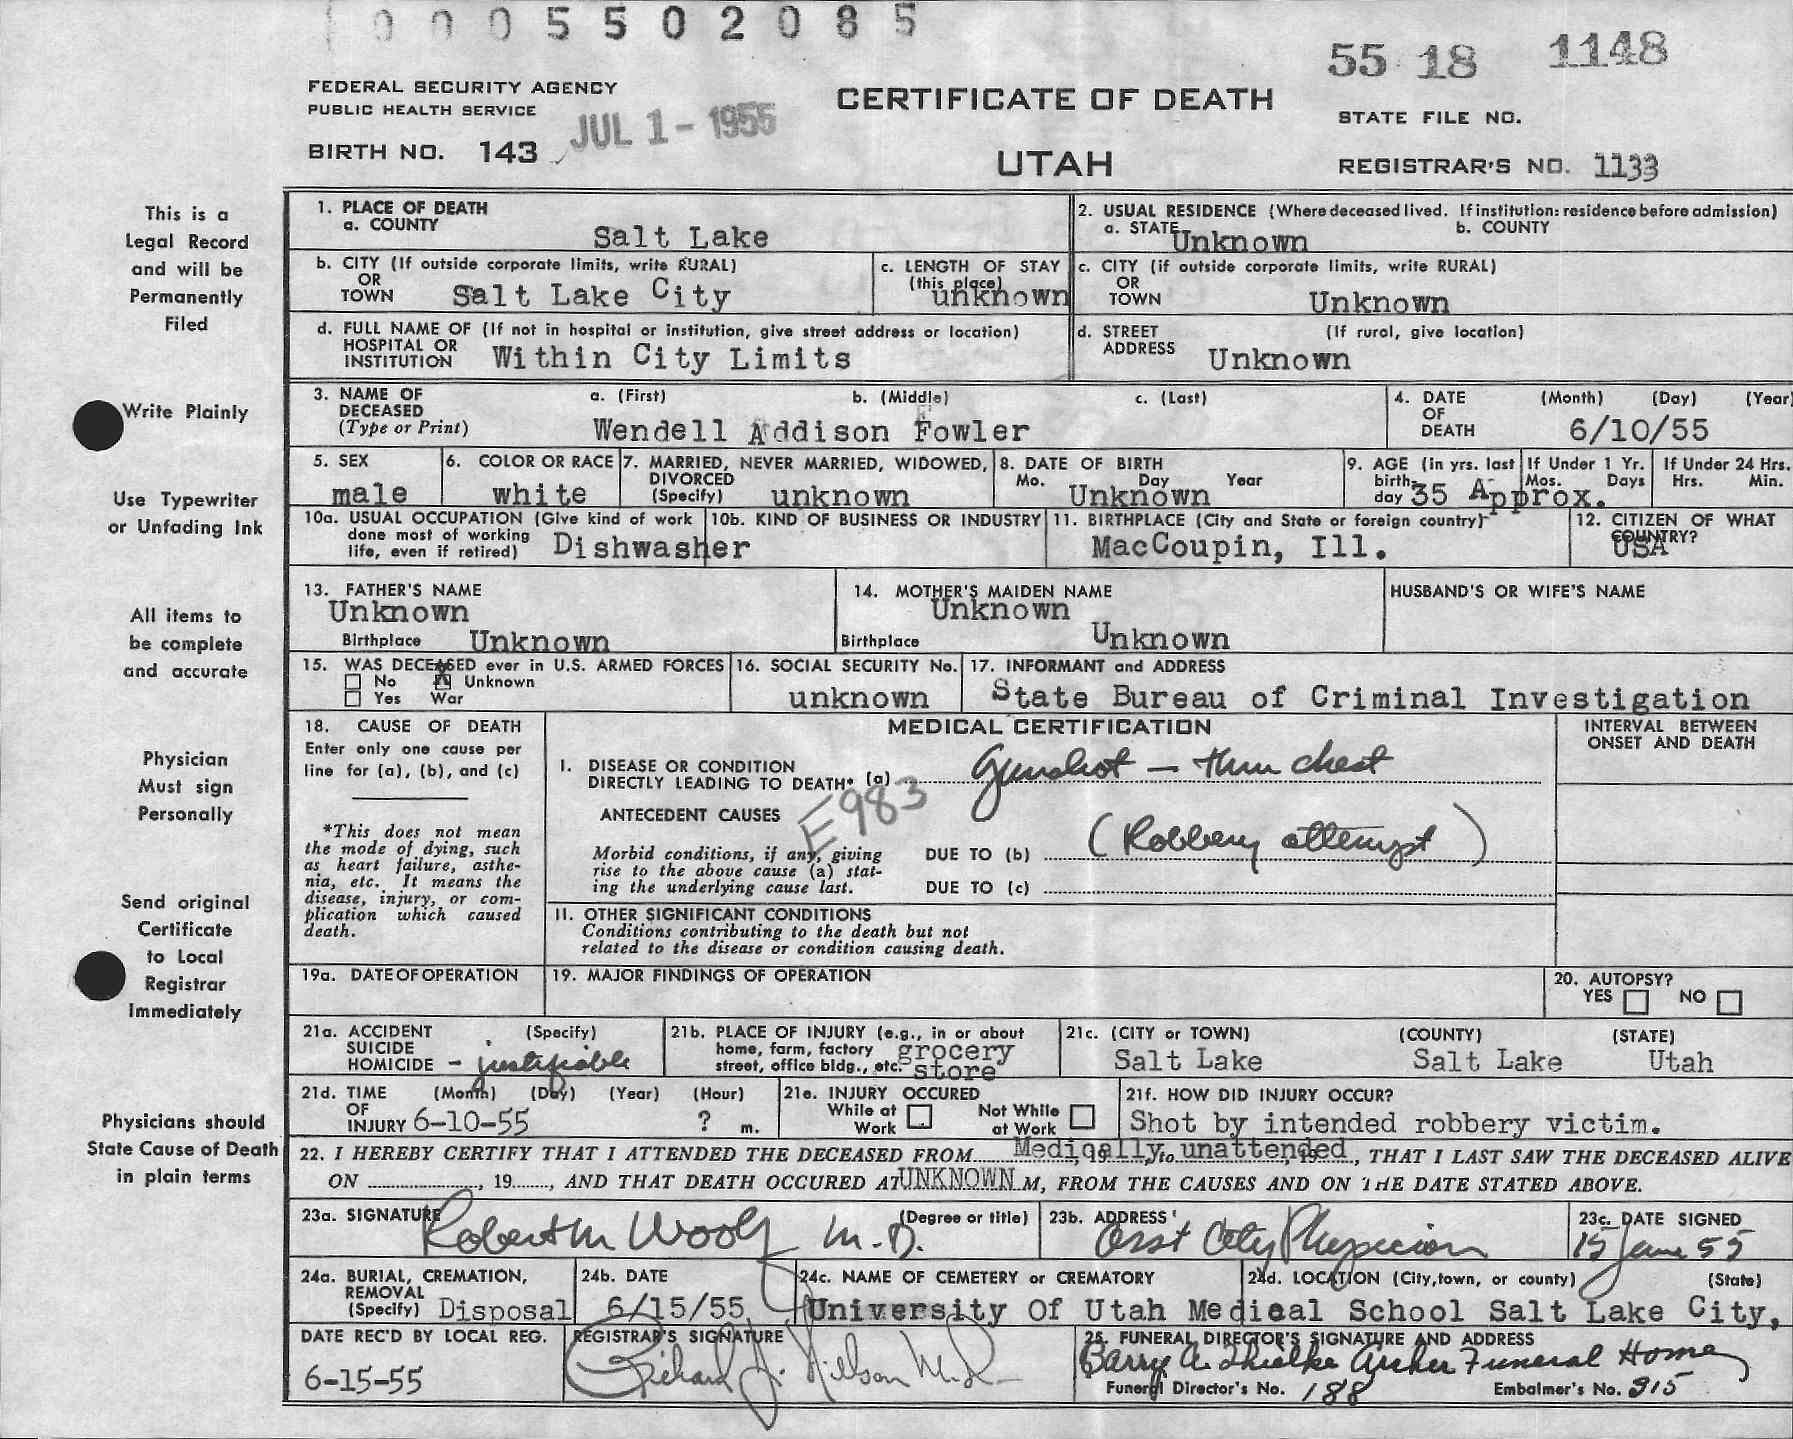 0005502085
55 18 1148
FEDERAL SECURITY AGENCY
PUBLIC HEALTH SERVICE
BIRTH NO. 143 JUL 1 - 1955
CERTIFICATE OF DEATH
UTAH
STATE FILE NO.
REGISTRAR'S NO. 1133
This is a
Legal Record
and will be
Permanently
Filed
Write Plainly
Use Typewriter
or Unfading Ink
All items to
be complete
and accurate
Physician
Must sign
Personally
Send original
Certificate
to Local
Registrar
Immediately
Physicians should
State Cause of Death
in plain terms
1. PLACE OF DEATH
a. COUNTY Salt Lake
2. USUAL RESIDENCE (Where deceased lived. If institution: residence before admission)
a. STATE Unknown b. COUNTY
b. CITY (If outside corporate limits, write RURAL)
OR
TOWN Salt Lake City
c. LENGTH OF STAY
(this place)
unknown
c. CITY (if outside corporate limits, write RURAL)
OR
TOWN Unknown
d. FULL NAME OF (If not in hospital or institution, give street address or location)
HOSPITAL OR
INSTITUTION Within City Limits
d. STREET (If rural, give location)
ADDRESS Unknown
3. NAME OF a. (First) b. (Middle) c. (Last)
DECEASED
(Type or Print) Wendell Addison Fowler
4. DATE (Month) (Day) (Year)
OF
DEATH 6/10/55
5. SEX
male
6. COLOR OR RACE
white
7. MARRIED, NEVER MARRIED, WIDOWED,
DIVORCED
(Specify) unknown
8. DATE OF BIRTH
Mo. Day Year
Unknown
9. AGE (in yrs. last
birth-
day 35 Approx.
If Under 1 Yr.
Mos. Days
If Under 24 Hrs.
Hrs. Min.
10a. USUAL OCCUPATION (Give kind of work
done most of working
life, even if retired) Dishwasher
10b. KIND OF BUSINESS OR INDUSTRY
11. BIRTHPLACE (City and State or foreign country)
MacCoupin, Ill.
12. CITIZEN OF WHAT
COUNTRY?
USA
13. FATHER'S NAME
Unknown
Birthplace Unknown
14. MOTHER'S MAIDEN NAME
Unknown
Birthplace Unknown
HUSBAND'S OR WIFE'S NAME
15. WAS DECEASED ever in U.S. ARMED FORCES
No X Unknown
Yes War
16. SOCIAL SECURITY No.
unknown
17. INFORMANT and ADDRESS
State Bureau of Criminal Investigation
18. CAUSE OF DEATH
Enter only one cause per
line for (a), (b), and (c)
*This does not mean
the mode of dying, such
as heart failure, asthe-
nia, etc. It means the
disease, injury, or com-
plication which caused
death.
MEDICAL CERTIFICATION
INTERVAL BETWEEN
ONSET AND DEATH
I. DISEASE OR CONDITION
DIRECTLY LEADING TO DEATH* (a) Gunshot - thru chest
E983
ANTECEDENT CAUSES
Morbid conditions, if any, giving
rise to the above cause (a) stat-
ing the underlying cause last.
DUE TO (b) (Robbery attempt)
DUE TO (c)
II. OTHER SIGNIFICANT CONDITIONS
Conditions contributing to the death but not
related to the disease or condition causing death.
19a. DATE OF OPERATION
19. MAJOR FINDINGS OF OPERATION
20. AUTOPSY?
YES NO
21a. ACCIDENT (Specify)
SUICIDE
HOMICIDE - justifiable
21b. PLACE OF INJURY (e.g., in or about
home, farm, factory
street, office bldg., etc. grocery
store
21c. (CITY or TOWN) (COUNTY) (STATE)
Salt Lake Salt Lake Utah
21d. TIME (Month) (Day) (Year) (Hour)
OF
INJURY 6-10-55 ? m.
21e. INJURY OCCURED
While at Work Not While at Work
21f. HOW DID INJURY OCCUR?
Shot by intended robbery victim.
22. I HEREBY CERTIFY THAT I ATTENDED THE DECEASED FROM Medically unattended, THAT I LAST SAW THE DECEASED ALIVE
ON , 19 , AND THAT DEATH OCCURED AT UNKNOWN M, FROM THE CAUSES AND ON THE DATE STATED ABOVE.
23a. SIGNATURE (Degree or title)
Robert M Woolf M.D.
23b. ADDRESS
Asst City Physician
23c. DATE SIGNED
15 June 55
24a. BURIAL, CREMATION,
REMOVAL
(Specify) Disposal
24b. DATE
6/15/55
24c. NAME OF CEMETERY or CREMATORY
24d. LOCATION (City, town, or county) (State)
University Of Utah Medical School Salt Lake City,
DATE REC'D BY LOCAL REG.
6-15-55
REGISTRAR'S SIGNATURE
Richard J. Nilson M.D.
25. FUNERAL DIRECTOR'S SIGNATURE AND ADDRESS
Barry A. Thielke Archer Funeral Home
Funeral Director's No. 188 Embalmer's No. 915